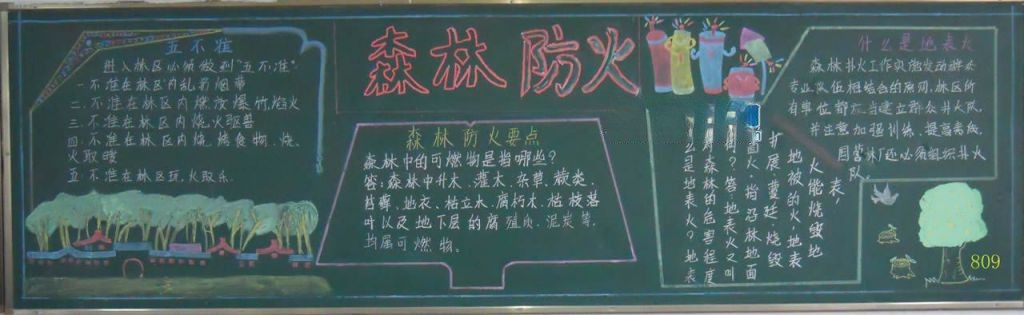 森林防火
五不准
进入林区必须做到“五不准”
一不准在林区内乱扔烟蒂
二.不准在林区内燃放爆竹,焰火
三.不准在林区内烧火驱兽
四.不准在林区内烧.烤食物.烧.
火取暖
五.不准在林区玩火取乐.
森林防火要点
森林中的可燃物是指哪些?
答:森林中升木、灌木、杂草、蕨类、
苔藓、地衣、枯立木、腐朽木、枯枝落
叶以及地下层的腐殖质、泥炭等,
均属可燃物.
么是地表火?地表
对森林的危害程度
答:地表火又叫
面火.指沿林地面
扩展、蔓延.烧毁
地被的火,地表
火能烧毁地
表,
什么是地表火
森林扑火工作实施发动群众
专业队伍相结合的原则,林区所
有单位都应当建立群众扑火队,
并注意加强训练、提高素质,
国营林厂还必须组织扑火
队.
809